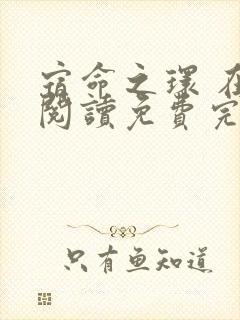 宿命之環 在
閱讀免費完
只有魚知道